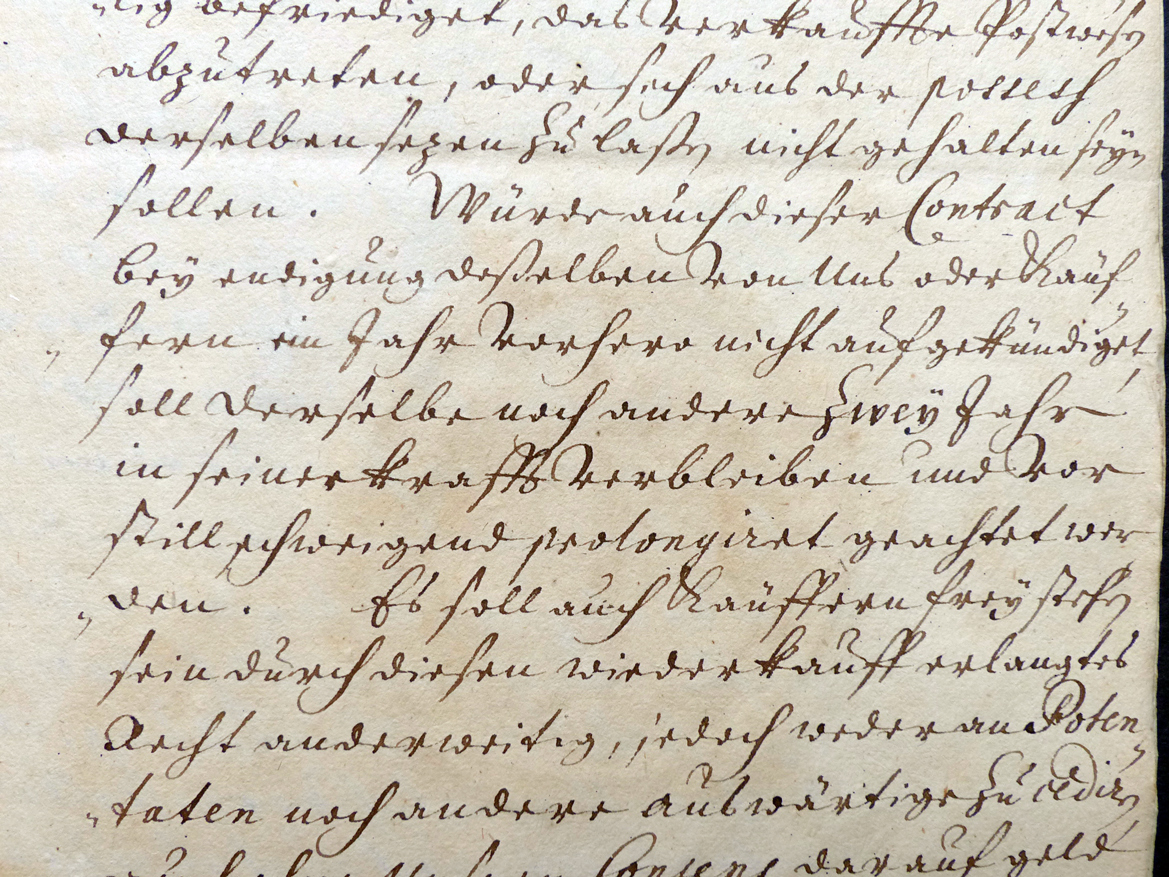 befriediget, das verkauffte Postwesen
abzutreten, oder sich aus der possess
derselben sezen zu laßen nicht gehalten seyn
sollen. Würde auch dieser Contract
bey endigung deßelben von Uns oder Käuf-
fern ein Jahr vorhero nicht aufgekündiget,
soll derselbe noch andere zwey Jahr
in seiner krafft verbleiben und vor
stillschweigend prolongiret geachtet wer
den. Es soll auch Käuffern frey stehen
sein durch diesen wiederkauff erlangtes
Recht anderweitig, jedoch weder an Poten-
taten noch andere auswärtige zu cediren,
Consens darauf geld